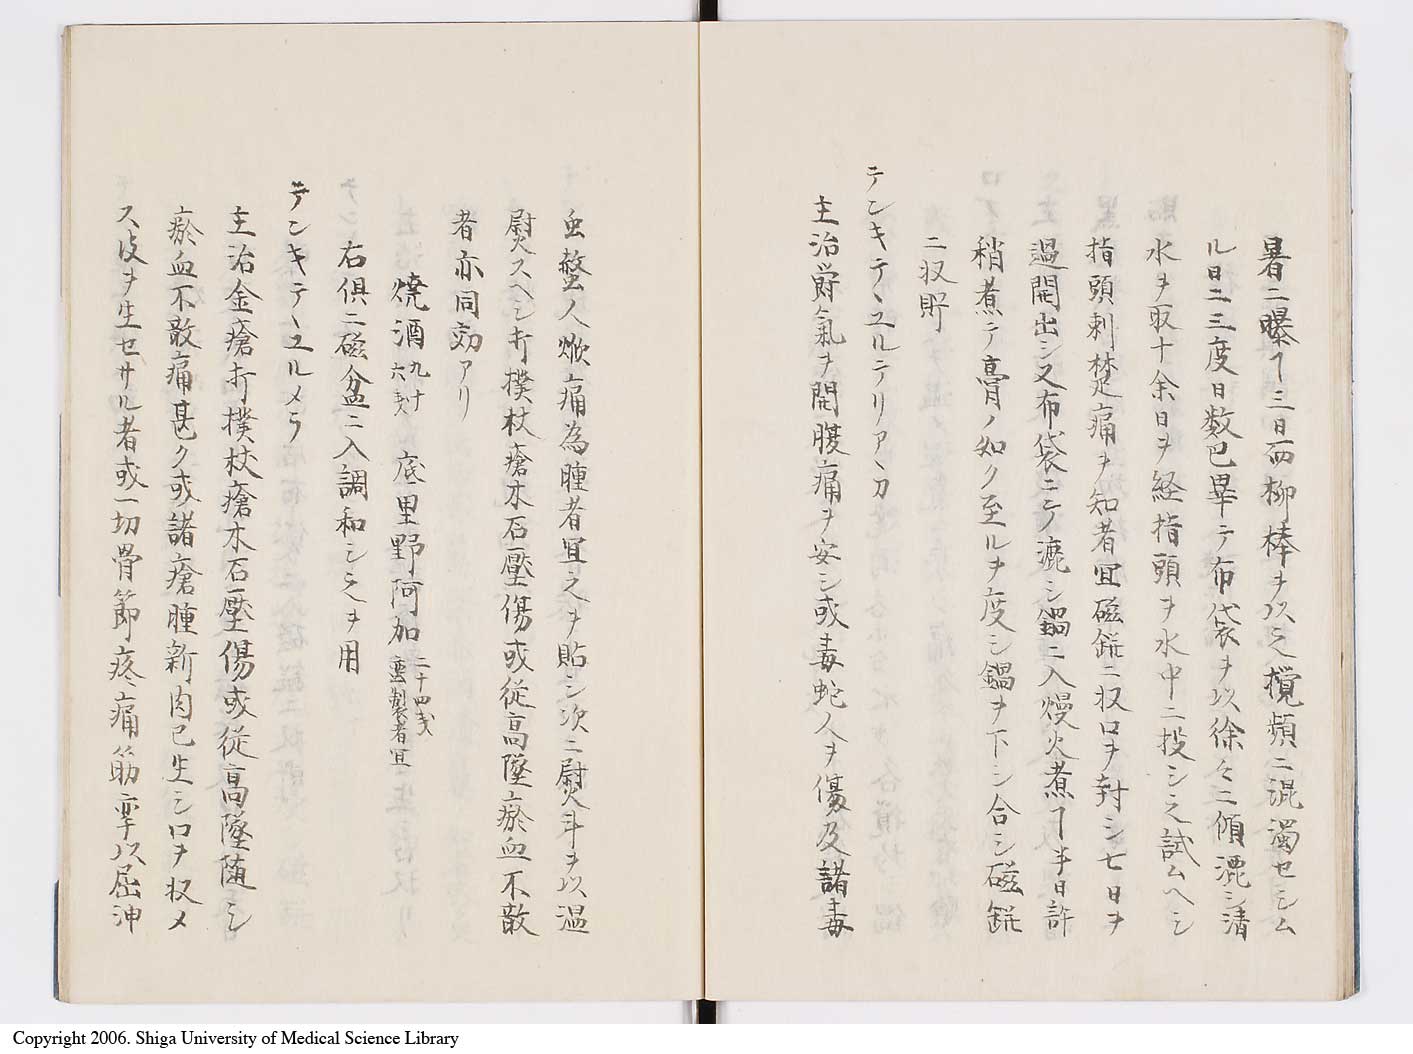 暑ニ曝ヿ三日而柳棒ヲ以之攪頻ニ混濁セシム
ル日二三度日数已畢テ布袋ヲ以徐々ニ傾漉シ清
水ヲ取十余日ヲ経指頭ヲ水中ニ投シ之試ムヘシ
指頭刺楚痛ヲ知者宜磁鋌ニ収口ヲ封シ七日ヲ
過開出シ又布袋ニテ漉シ鍋ニ入熳火煮ヿ半日許
稍煮テ膏ノ如ク至ルヲ度シ鍋ヲ下シ合シ磁鋌
ニ収貯
テンキテヽユルテリアヽカ
主治欝氣ヲ開腹痛ヲ安シ或毒蛇人ヲ傷及諸毒
虫螫人焮痛為腫者宜之ヲ貼シ次ニ熨斗ヲ以温
熨スヘシ打撲杖瘡木石壓傷或従高墜瘀血不散
者亦同効アリ
焼酒九十六戔 底里野阿加二十四戔蛮製者宜
右倶ニ磁盆ニ入調和シ之ヲ用
テンキテヽユルメラ
主治金瘡打撲杖瘡木石壓傷或従高墜随シ
瘀血不散痛甚ク或諸瘡腫新肉已生シ口ヲ収メ
ス皮ヲ生セサル者或一切骨節疼痛筋挛以屈伸